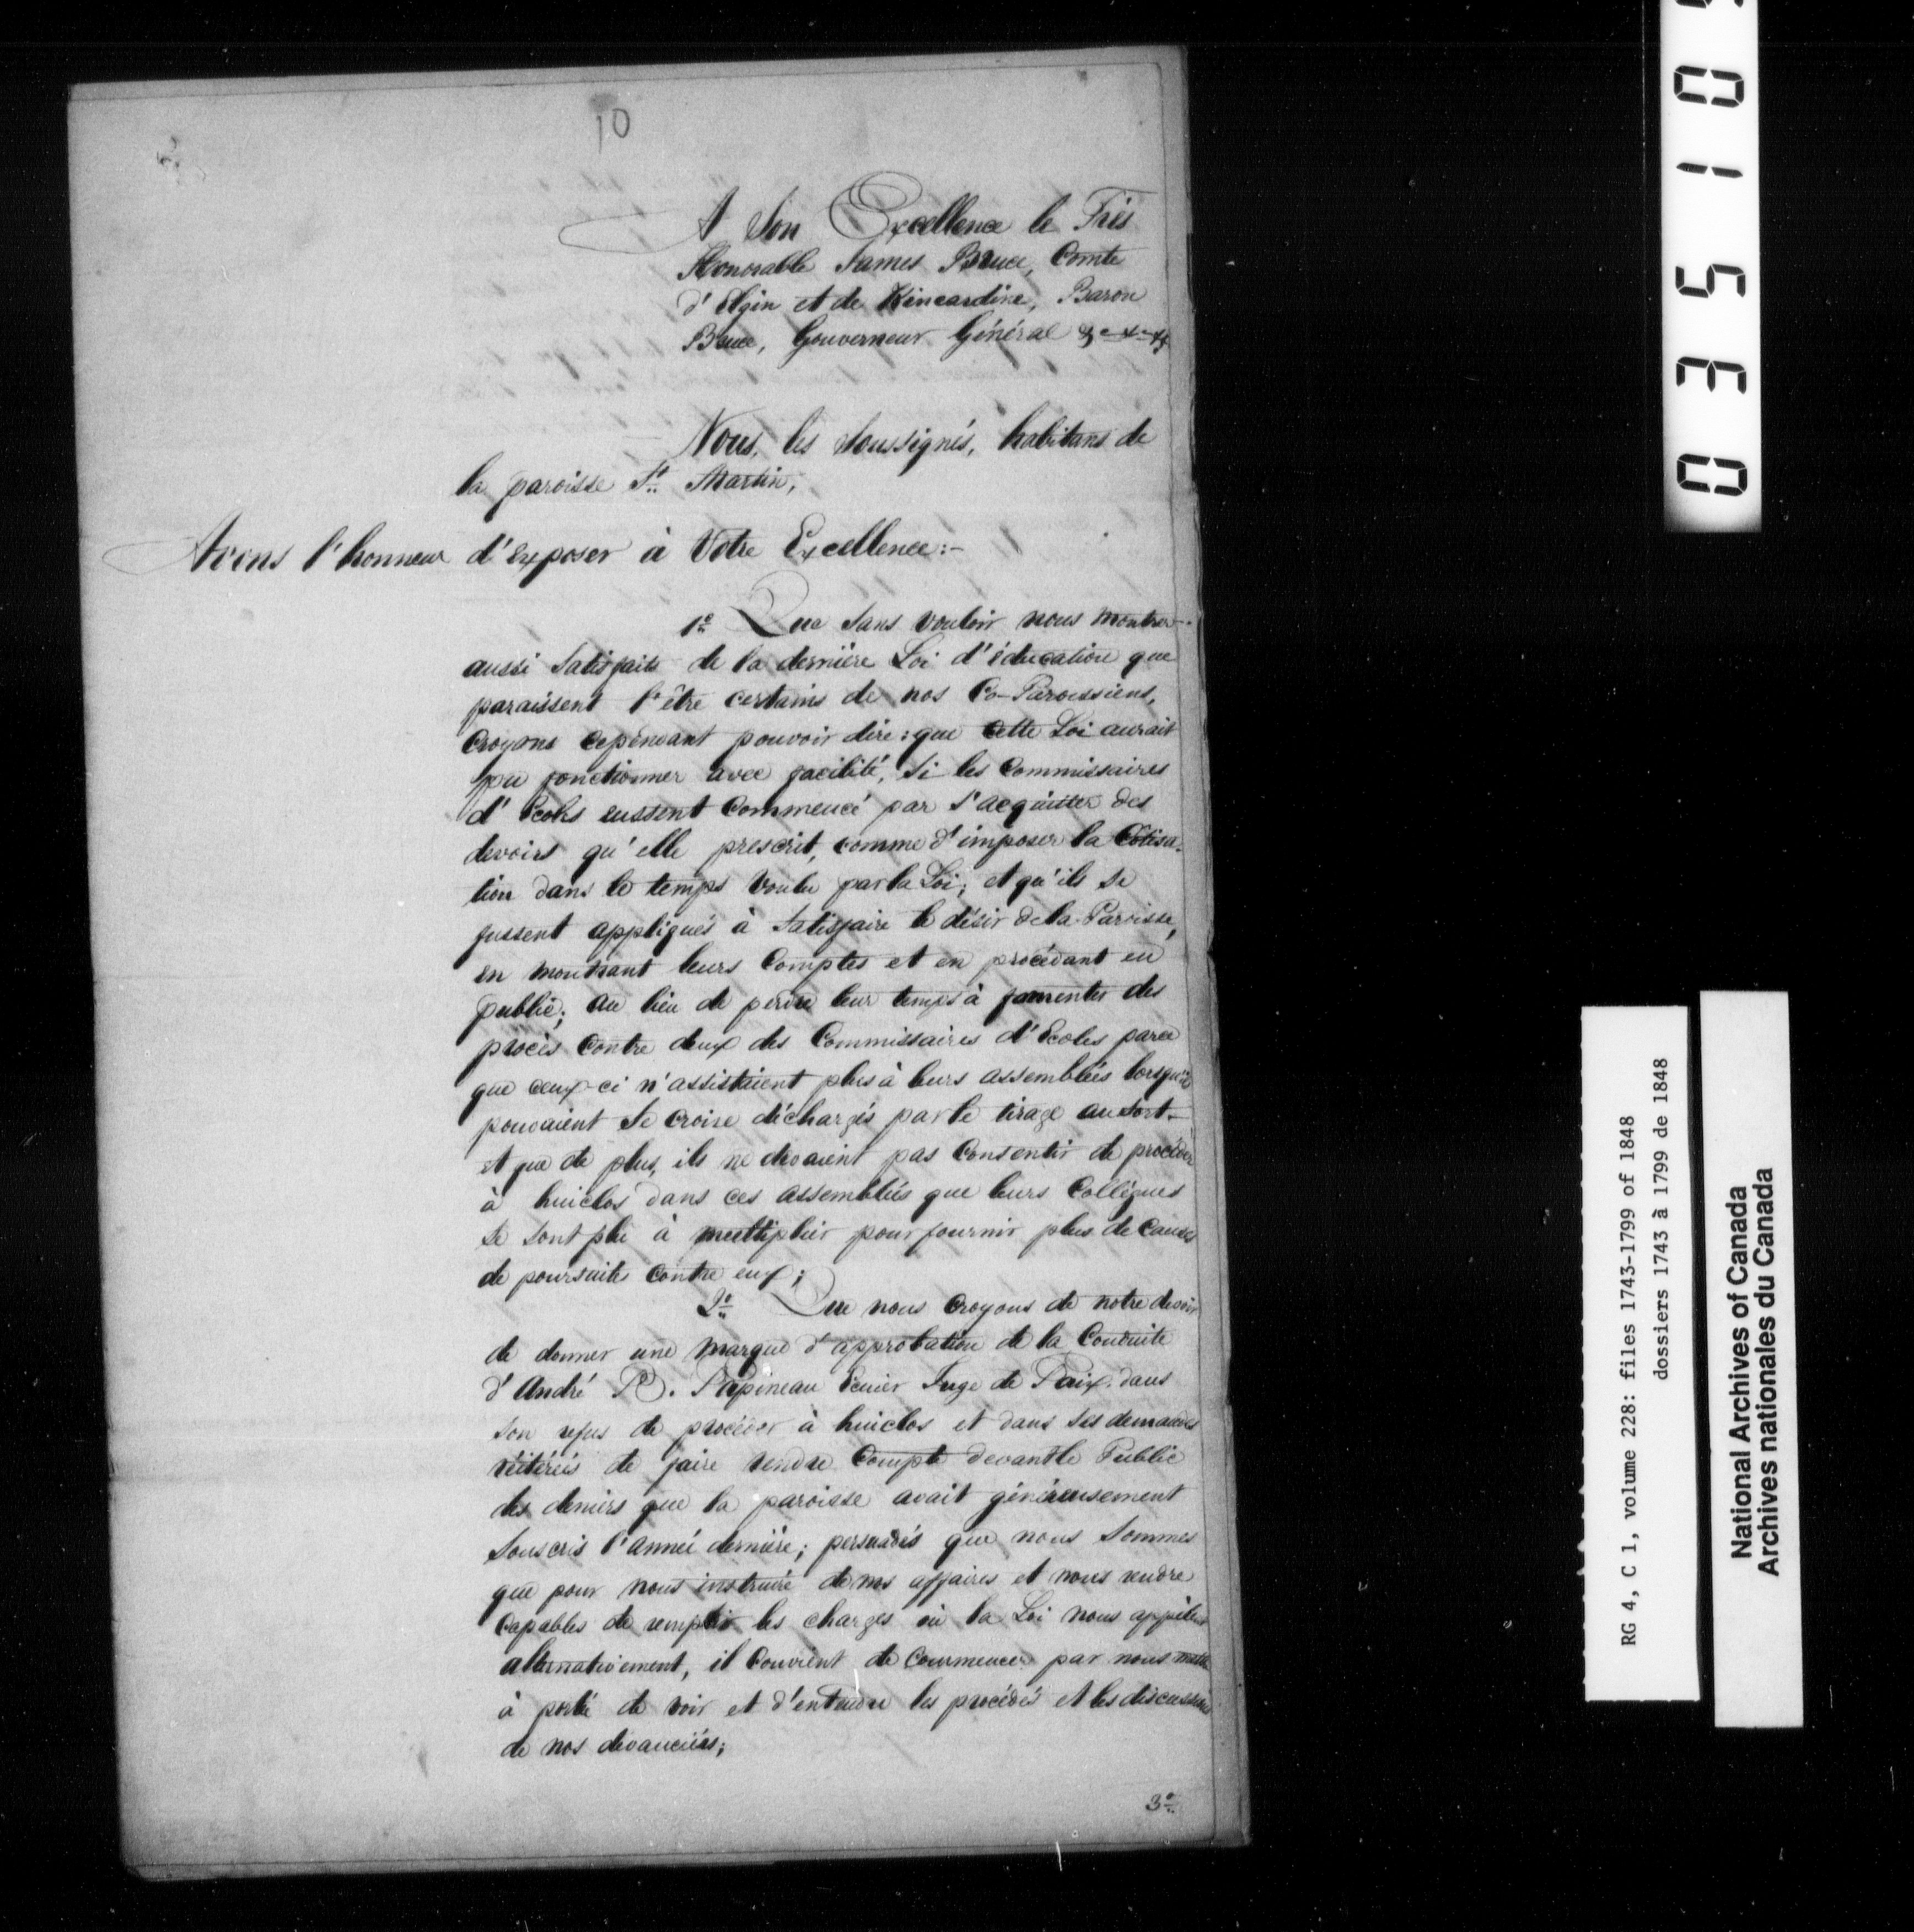 10
A Son Excellence le Très
Honorable James Bruce, Comte
d'Elgin et de Kincardine, Baron
Bruce, Gouverneur Général &c &c &c
Nous, les soussignés, habitans de
la paroisse St. Martin,
Avons l'honneur d'exposer à Votre Excellence:-
1o. Que sans vouloir nous montrer
aussi satisfaits de la dernière Loi d'éducation que
paraissent l'être certains de nos Co-Paroissiens,
Croyons cependant pouvoir dire: que cette Loi aurait
pu fonctionner avec facilité, si les Commissaires
d'Ecoles eussent Commencé par s'acquitter des
devoirs qu'elle prescrit, comme d'imposer la Cotisa-
tion dans le temps voulu par la Loi; et qu'ils se
fussent appliqués à satisfaire le désir de la Paroisse,
en montrant leurs Comptes et en procédant en
public; au lieu de perdre leur temps à fomenter des
procès contre deux des Commissaires d'Ecoles parce
que ceux-ci n'assistaient plus à leurs assemblées lorsqu'ils
pouvaient se croire déchargés par le tirage au sort-
et que de plus, ils ne devaient pas Consentir de procéder
à huiclos dans ces assemblées que leurs Collègues
se sont plu à multiplier pour fournir plus de Causes
de poursuites Contre eux;
2o. Que nous Croyons de notre devoir
de donner une marque d'approbation de la Conduite
d'André B. Papineau Ecuier Juge de Paix, dans
son refus de procéder à huiclos et dans ses demandes
réitérées de faire rendre Compte devant le Public
des deniers que la paroisse avait généreusement
souscris l'année dernière; persuadés que nous sommes
que pour nous instruire de nos affaires et nous rendre
Capables de remplir les charges où la Loi nous appelent
alternativement, il Convient de Commencer par nous mettre
à porté de voir et d'entendre les procédés et les discussions
de nos devanciers;
3o.
0 3 5 1 0
RG 4, C 1, volume 228: files 1743-1799 of 1848
dossiers 1743 à 1799 de 1848
National Archives of Canada
Archives nationales du Canada